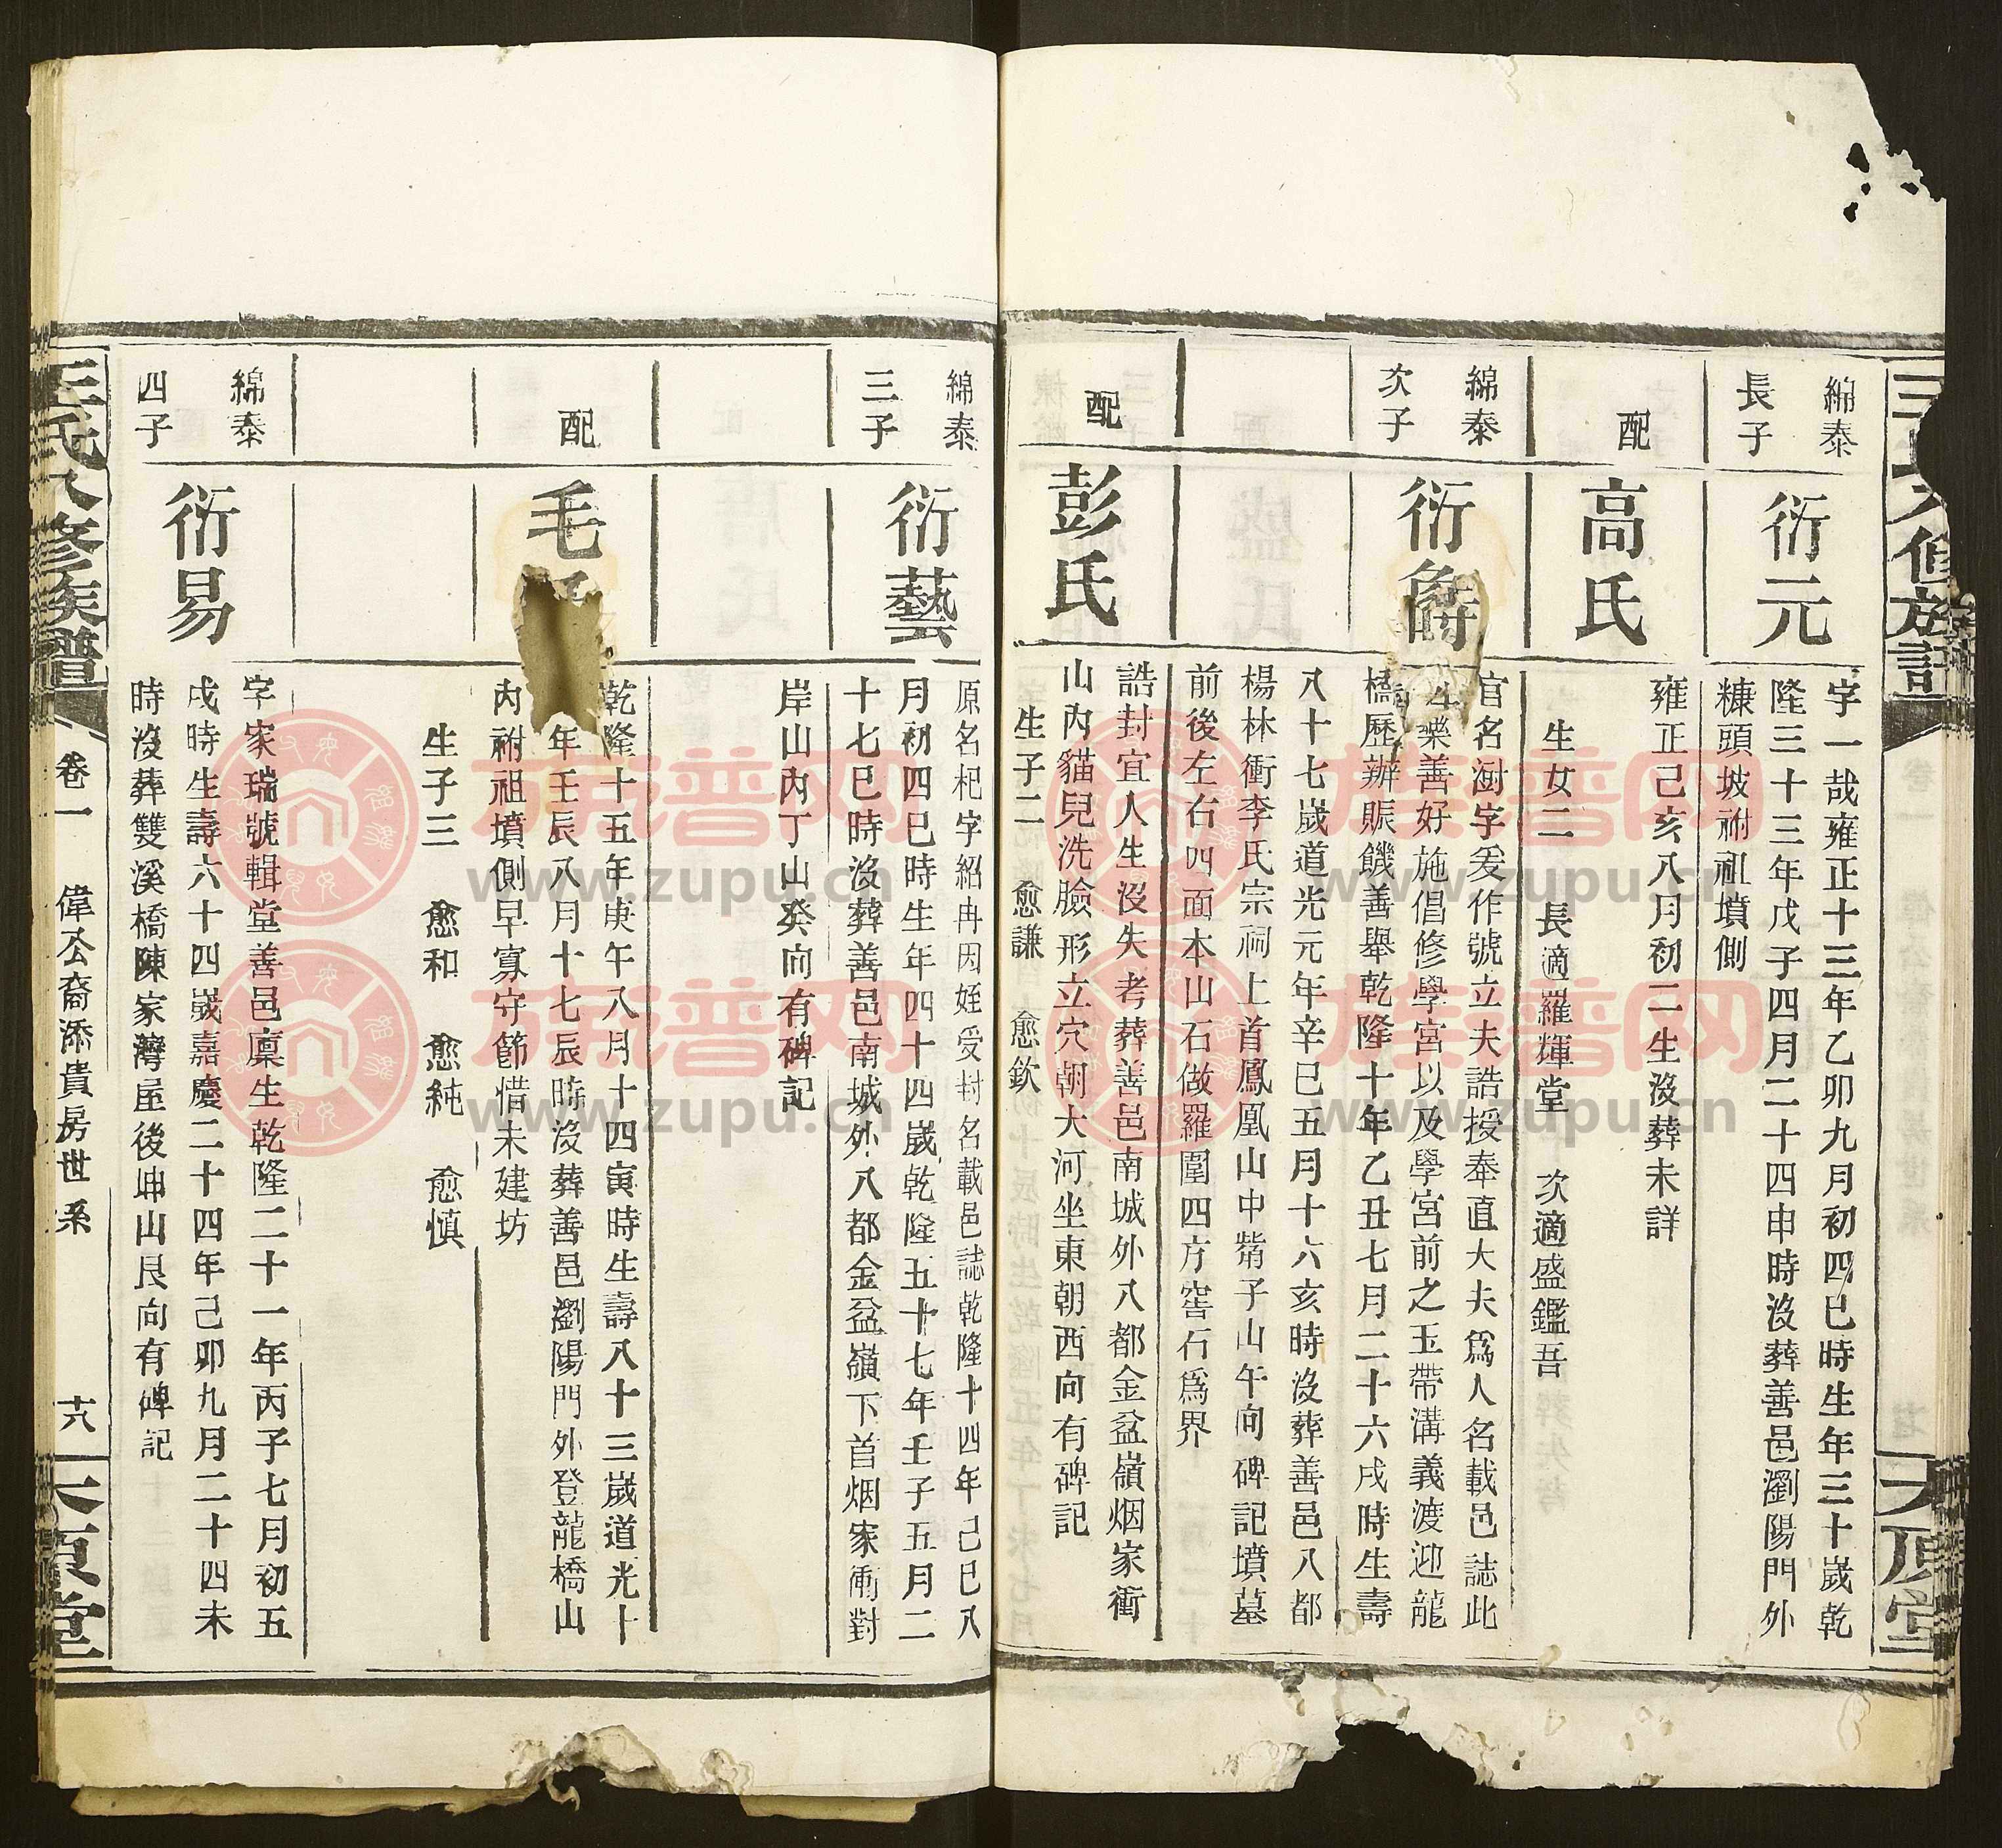 綿泰
長子
衍元
字一哉雍正十三年乙卯九月初四巳時生年三十歲乾
隆三十三年戊子四月二十四申時沒葬善邑瀏陽門外
糠頭坡祔祖墳側
配
高氏
雍正己亥八月初二生沒葬未詳
生女二 長適羅輝堂 次適盛鑑吾
綿泰
次子
衍
官名澍字爰作號立夫誥授奉直大夫為人名載邑誌此
樂善好施倡修學宮以及學宮前之玉帶溝義渡迎龍
橋歷辦賑饑善舉乾隆十年乙丑七月二十六戌時生壽
八十七歲道光元年辛巳五月十六亥時沒葬善邑八都
楊林衝李氏宗祠上首鳳凰山中觜子山午向碑記墳墓
前後左右四面本山石做羅圍四方窖石為界
配
彭氏
誥封宜人生沒失考葬善邑南城外八都金盆嶺烟家衝
山內貓兒洗臉形立穴朝大河坐東朝西向有碑記
生子二 愈謙 愈欽
綿泰
三子
衍藝
原名杞字紹冉因姪受封名載邑誌乾隆十四年己巳八
月初四巳時生年四十四歲乾隆五十七年壬子五月二
十七巳時沒葬善邑南城外八都金盆嶺下首烟家衝對
岸山內丁山癸向有碑記
配
毛
乾隆十五年庚午八月十四寅時生壽八十三歲道光十
年壬辰八月十七辰時沒葬善邑瀏陽門外登龍橋山
內祔祖墳側早寡守節惜未建坊
生子三 愈和 愈純 愈慎
綿泰
四子
衍易
字家瑞號輯堂善邑廩生乾隆二十一年丙子七月初五
戌時生壽六十四歲嘉慶二十四年己卯九月二十四未
時沒葬雙溪橋陳家灣屋後坤山艮向有碑記
王氏八修族譜
卷一 偉公裔添貴房世系
十八
族谱网
www.zupu.cn
族谱网
www.zupu.cn
族谱网
www.zupu.cn
族谱网
www.zupu.cn